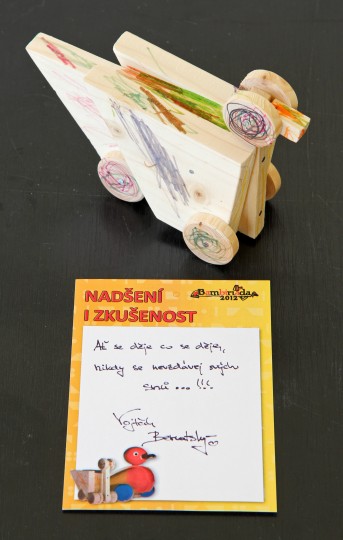 NADŠENÍ
I ZKUŠENOST
Bambiriáda
2012
Ať se děje co se děje,
nikdy se nevzdávej svých
snů ... !!!
Vojtěch
Bernatský